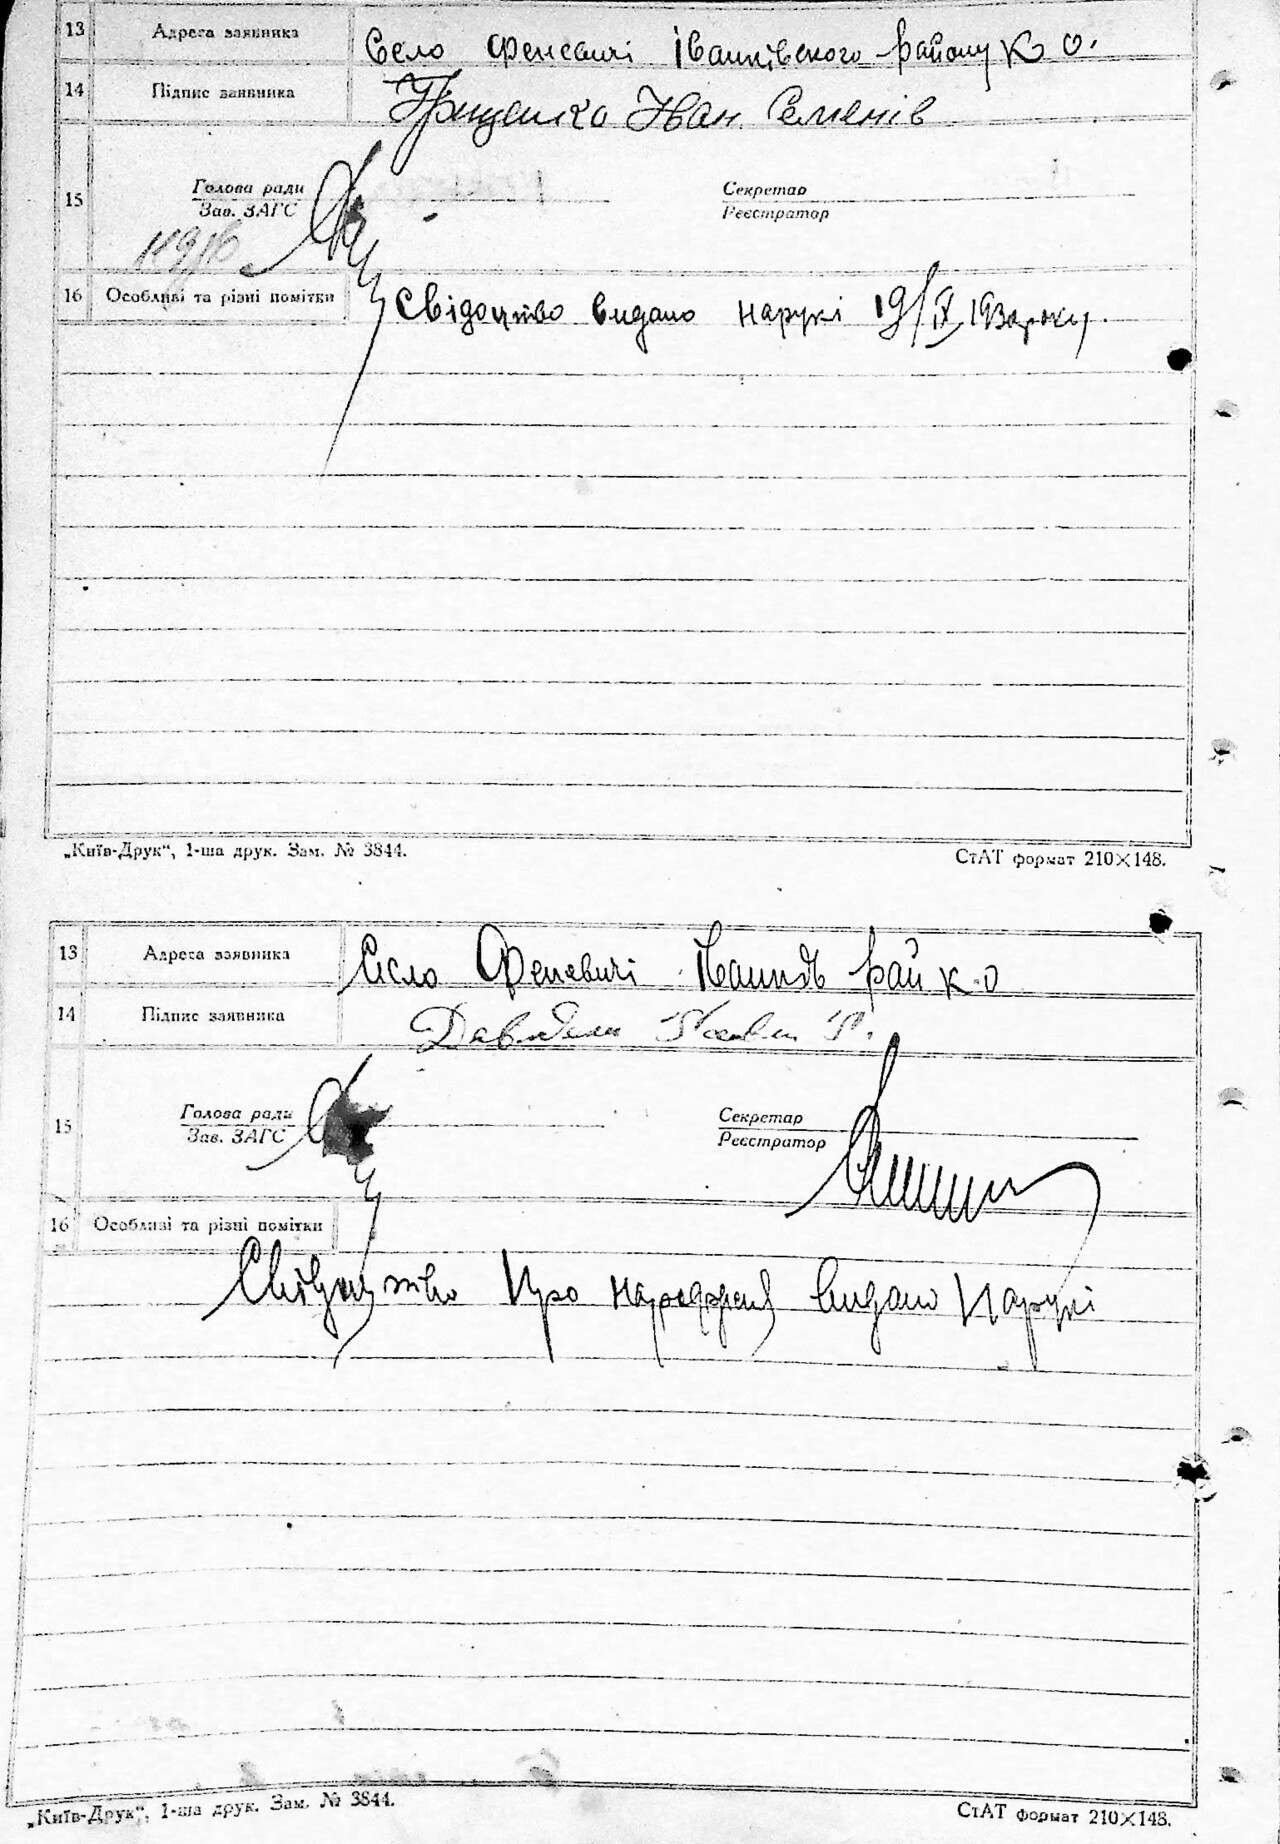 13 Адреса заявника Село Феневичі Іванківского району К. О.
14 Підпис заявника Грищенко Іван Семенів
15 Голова ради Секретар
Зав. ЗАГС Реєстратор
16 Особливі та різні помітки Свідоцтво видано нарукі 19/IX 193 року.
„Київ-Друк“, 1-ша друк. Зам. № 3844. СтАТ формат 210×148.
13 Адреса заявника Село Феневичі Іванків рай К. О
14 Підпис заявника
15 Голова ради Секретар
Зав. ЗАГС Реєстратор
16 Особливі та різні помітки
Свідоцтво про видано Нарукі
„Київ-Друк“, 1-ша друк. Зам. № 3844. СтАТ формат 210×148.